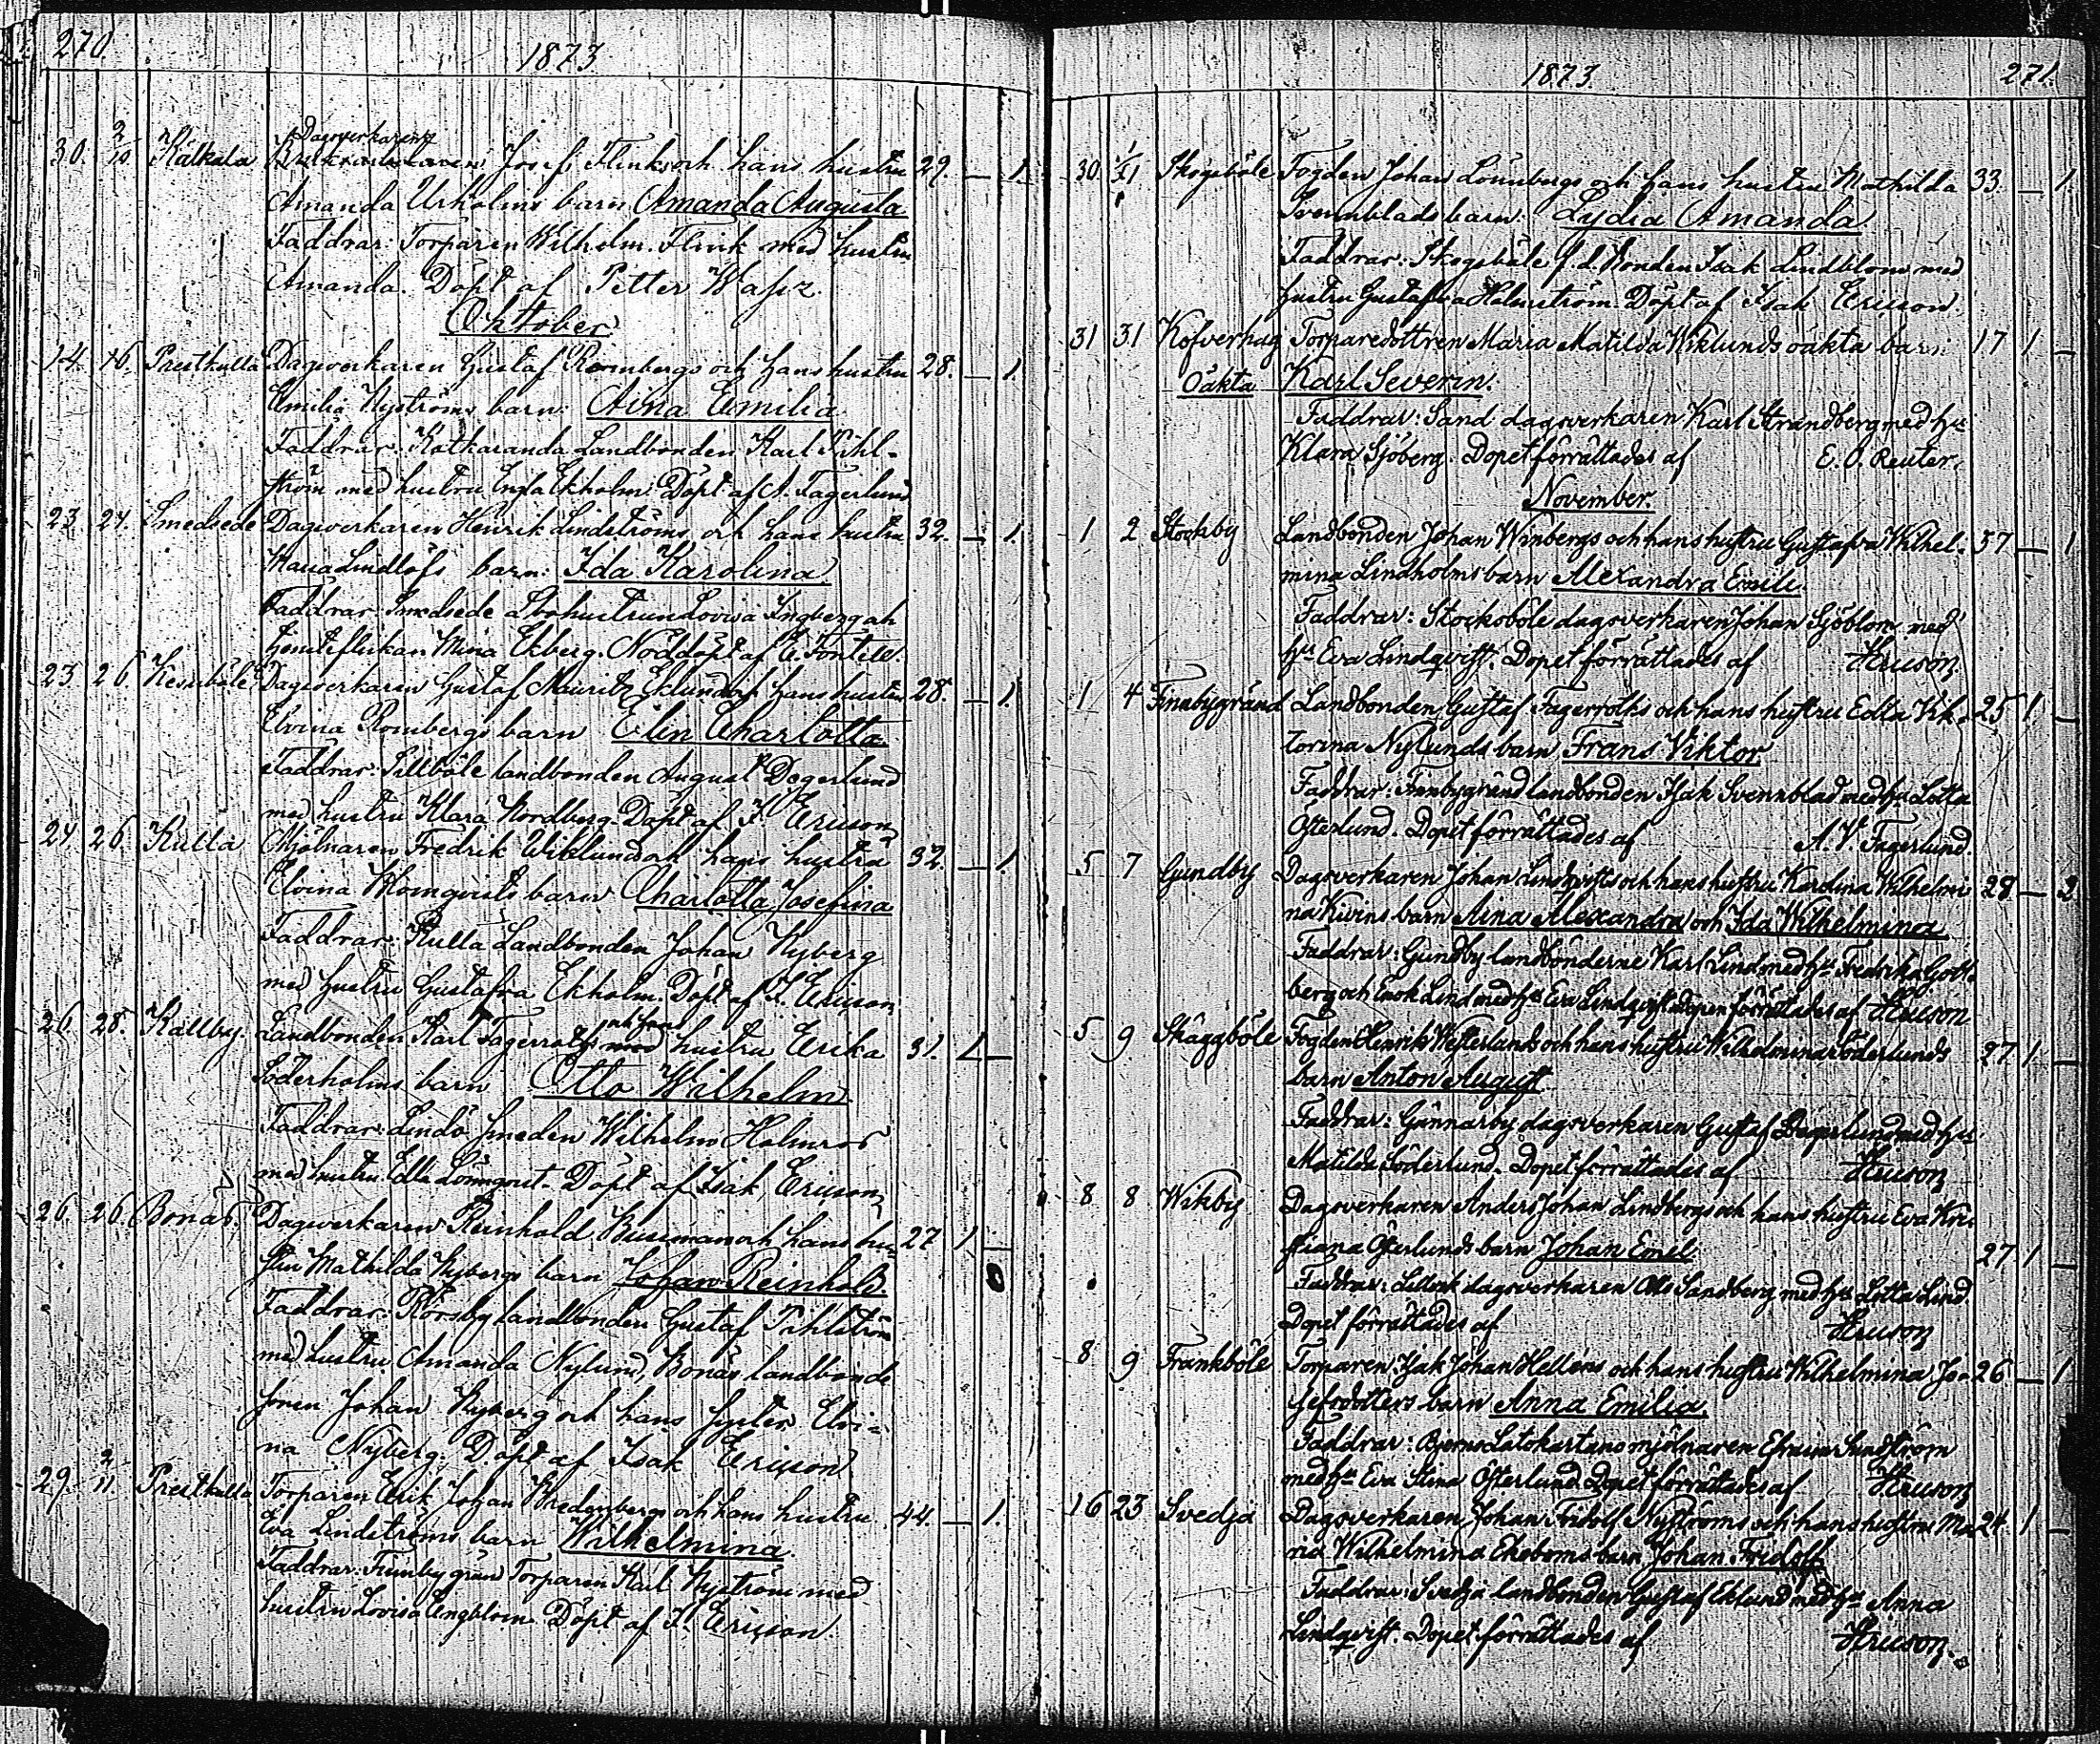 270.
1873
30. 2/10 Kälkala Dagsverkaren Josef Flinks och hans hustru 29. — 1.
Amanda Urholms barn Amanda Augusta
Faddrar: Torparen Wilhelm Flink med hustru
Amanda. Döpt af Petter
Oktober
14. 16. Prestkulla Dagsverkaren Gustaf Rombergs och hans hustru 28. — 1.
Emilia Nyströms barn: Aina Emilia
Faddrar: Landbonden Karl Pihl-
ström med hustru Ekholm. Döpt af A. Fagerlund
23 24. Smedsede Dagsverkaren Henrik Lindströms och hans hustru 32. — 1.
Maria Lindlöfs barn: Ida Karolina.
Faddrar: Smedsede Lovisa Ingberg och
Mina Ekberg. Nöddöpt af E. Fontell.
23 26 Dagsverkaren Gustaf Mauritz Eklunds och hans hustru 28. — 1.
Elvina Rombergs barn Elin Charlotta.
Faddrar: Sillböle landbonden August Degerlund
med hustru Klara Nordberg. Döpt af I. Ericson
24. 26. Kulla Mjölnaren Fredrik Wiklunds och hans hustru 32. — 1.
Elvina Blomqvists barn Charlotta Josefina
Faddrar: Kulla Landbonden Johan Nyberg
med hustru Gustafva Ekholm. Döpt af I. Ericson
26. 28. Källby. Landbonden Karl Fagerroths och hans hustru Erika 31. 1 —
Söderholms barn Otto Wilhelm.
Faddrar: Lindö Smeden Wilhelm Holmros
med hustru Edla Lönnqvist. Döpt af Isak Ericson
26. 26. Bonäs. Dagsverkaren Reinhold Busimans och hans hu- 27 1 —
stru Mathilda Nybergs barn Johan Reinhold.
Faddrar: Rörsby landbonden Gustaf Pihlström
med hustru Amanda Nylund, Bonäs landbonde
sonen Johan Nyberg och hans syster Elvi-
na Nyberg. Döpt af Isak Ericson
29. 2/11. Prestkulla Torparen Erik Johan Bredenbergs och hans hustru 44. — 1.
Eva Lindströms barn Wilhelmina.
Faddrar: Finnbygränd Torparen Karl Nyström med
hustru Lovisa Engblom. Döpt af I. Ericson
1873
271.
30 1/11 Skogsböle Fogden Johan Lönnbergs och hans hustru Mathilda 33. — 1
Svennblads barn: Lydia Amanda
Faddrar: Skogsböle f.d. Bonden Isak Lindblom med
hustru Gustafva Holmström. Döpt af Isak Ericson.
31 31 Kofverhag Torparedottren Maria Matilda Wiklunds oäkta barn 17 1 —
Oäkta Karl Severin.
Faddrar: Sand dagsverkaren Karl Strandberg med hu
Klara Sjöberg. Dopet förrättades af E. O. Reuter.
November.
1 2 Stocksby Landbonden Johan Winbergs och hans hustru Gustafva Wilhel- 37 — 1
mina Lindholms barn Alexandra Emili.
Faddrar: Stocksböle dagsverkaren Johan Sjöblom med
hu Eva Lindqvist. Dopet förrättades af Ericson
1 4 Finnbygränd Landbonden Gustaf Fagerroths och hans hustru Edla Vik- 25 1 —
torina Nylunds barn Frans Viktor
Faddrar: Finnbygränd landbonden Isak Svennblad med hu Lotta
Österlund. Dopet förrättades af A. V. Fagerlund.
5 7 Gundby Dagsverkaren Johan Lindqvists och hans hustru Karolina Wilhelmi 28 — 2
na Kivins barn Aina Alexandra och Ida Wilhelmina
Faddrar: Gundby landbönderne Karl Lind med hu Fredrika Gott-
berg och Enok Lind med hu Eva Lindqvist dopen förrättades af Ericson
5 9 Skäggböle Fogden Henrik Westerlunds och hans hustru Wilhelmina Söderlunds 27 1 —
barn Anton August
Faddrar: Gunnarby dagsverkaren Gustaf Degerlund med hu
Matilda Söderlund. Dopet förrättades af Ericson
8 8 Wikby Dagsverkaren Anders Johan Lindbergs och hans hustru Eva Kri-
stiana Österlunds barn Johan Emil 27 1 —
Faddrar: dagsverkaren Otto Sandberg med hu Lotta Lind.
Dopet förrättades af Ericson
8 9 Frankböle Torparen Isak Johan Hellens och hans hustru Wilhelmina Jo- 26 — 1
sefsdotters barn Anna Emilia.
Faddrar: Bjerno Latokartano mjölnaren Efraim Sundström
med hu Eva Stina Österlund. Dopet förrättades af Ericson
16 23 Svedja Dagsverkaren Johan Fridolf Nyströms och hans hustru Ma 24 1 —
ria Wilhelmina Ekeboms barn Johan Fridolf
Faddrar: Svedja landbonden Gustaf Eklund med hu Anna
Lindqvist. Dopet förrättades af Ericson.